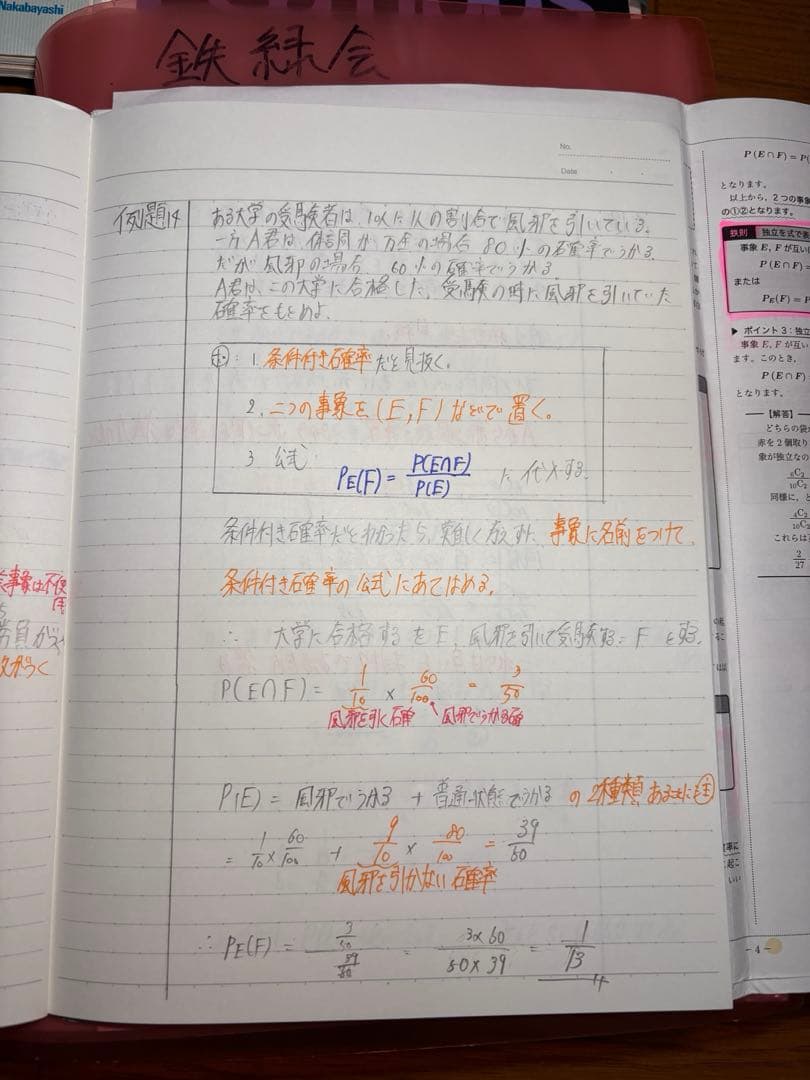 Nakabayashi
鉄緑会
No.
Date
例題14
ある大学の受験者は、10人に1人の割合で風邪を引いている。
一方A君は、体調が万全の場合 80%の確率でうかる。
だが風邪の場合 60%の確率でうかる。
A君は、この大学に合格した。受験の時に風邪を引いていた
確率をもとめよ。
1. 条件付き確率だと見抜く。
2. 二つの事象を(E,F)などで置く。
3 公式 PE(F) = P(E∩F)/P(E) に代入する。
条件付き確率だとわかったら、難しく考えずに、事象に名前をつけて、
条件付き確率の公式にあてはめる。
∴ 大学に合格するをE、風邪を引いて受験する=F とする。
P(E∩F) = 1/10 × 60/100 = 3/50
風邪を引く確率 風邪でうかる確
P(E) = 風邪でうかる + 普通状態でうかる の2種類あることに注
= 1/10 × 60/100 + 9/10 × 80/100 = 39/50
風邪を引かない確率
∴ PE(F) = 3/50 / 39/50 = 3×50/50×39 = 1/13
事象は不使
P(E∩F) = P(
となります。
以上から、2つの事象
の①②となります。
鉄則 独立を式で表
事象 E, F が互いに
P(E∩F) =
または
PE(F) = P
▶ ポイント3:独立
事象 E, F が互い
ます。このとき、
P(E∩F) =
となります。
【解答】
どちらの袋か
赤を2個取り
象が独立なの
6C2
10C2
同様に、と
4C2
10C2
これらは
2
27
- 4 -